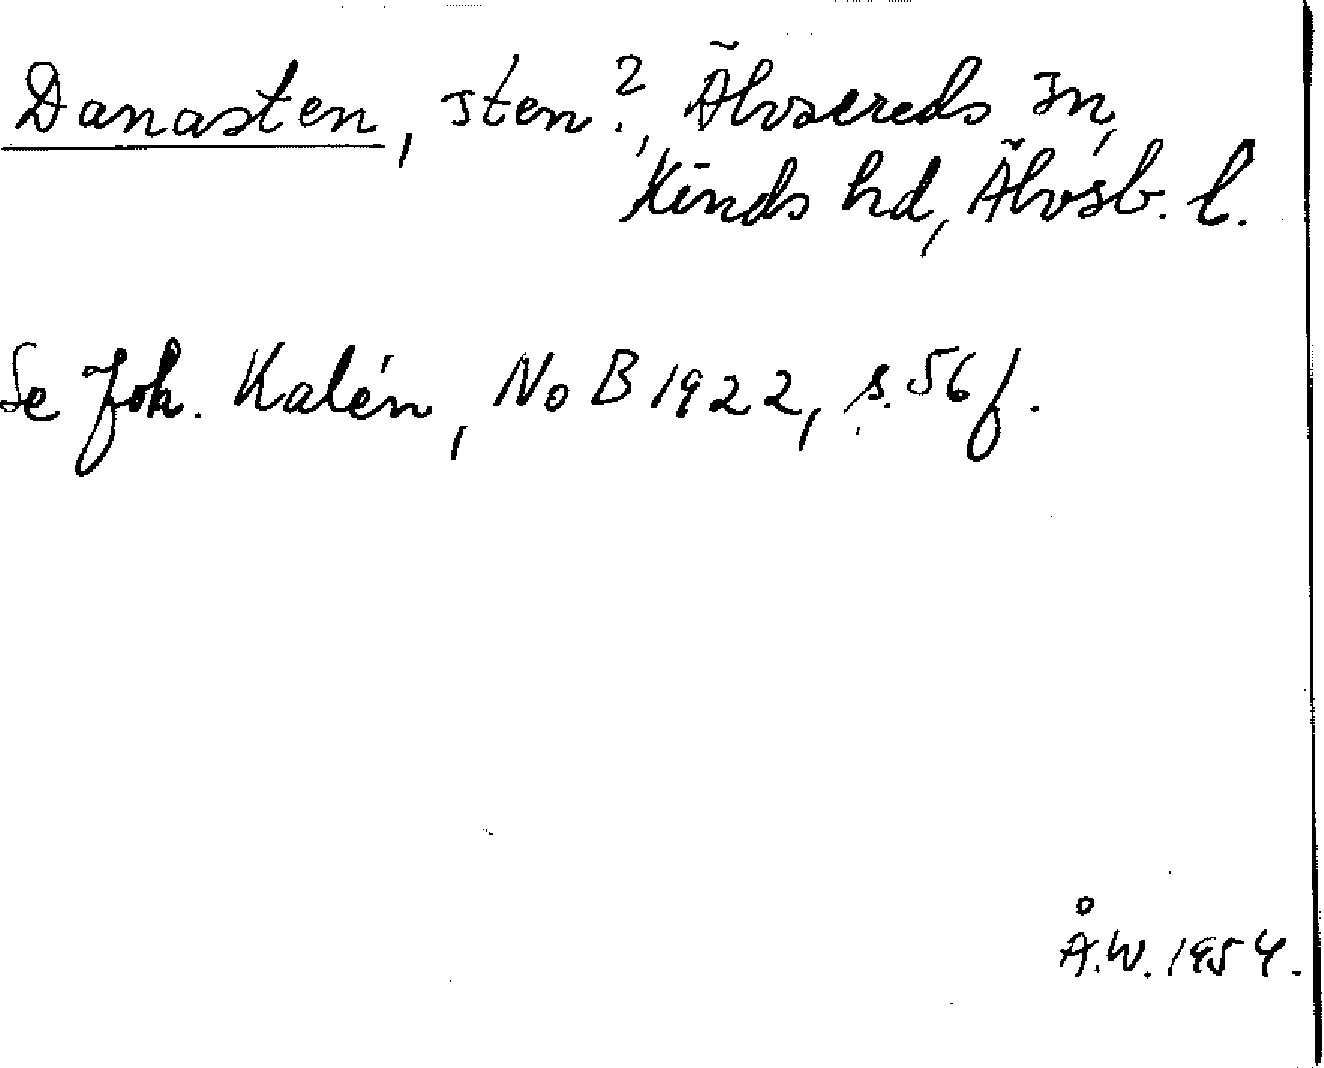 Danasten, sten?, Älvsereds sn,
Kinds hd, Älvsb. l.
Se Joh. Kalén, NoB 1922, s. 56 f.
Å.W. 1954.